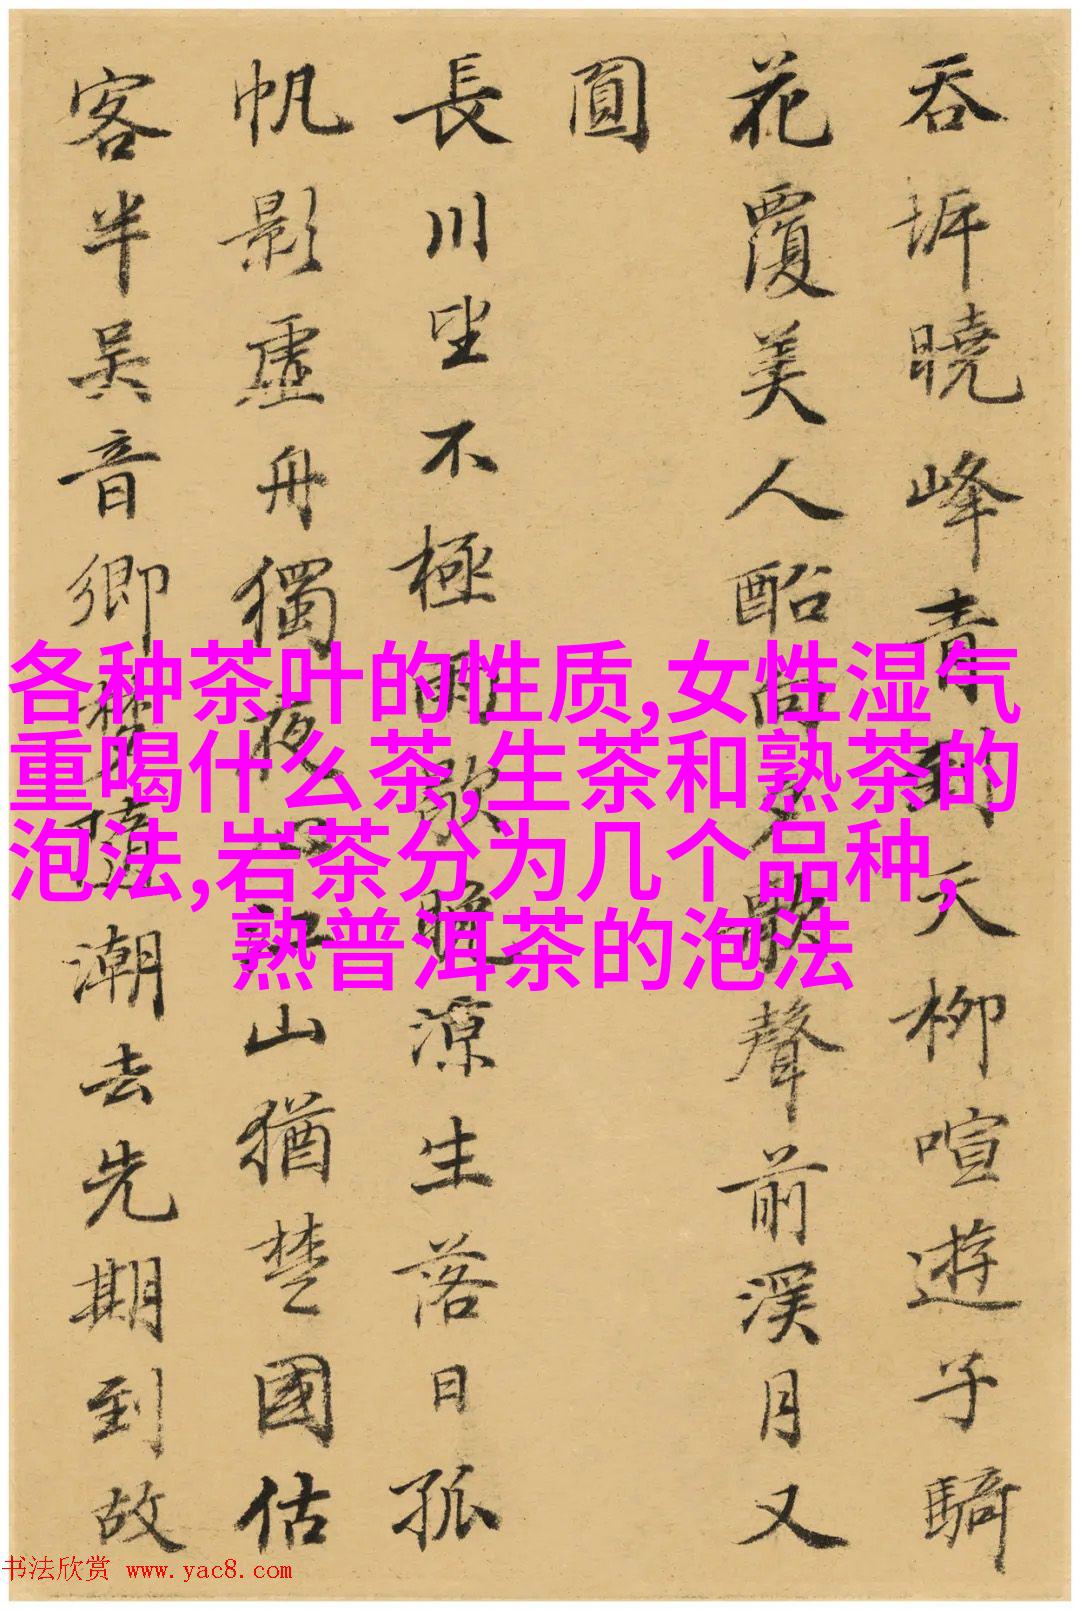 吞坼曉峰青到天柳喧遊子騎
花覆美人船向夕聲前溪月又
圓
長川坐不極雨歇晚涼生落日孤
帆影虛舟獨夜心山猶楚國估
客半吳音卿潮去先期到故
各种茶叶的性质,女性湿气
重喝什么茶,生茶和熟茶的
泡法,岩茶分为几个品种,
熟普洱茶的泡法
书法欣赏 www.yac8.com